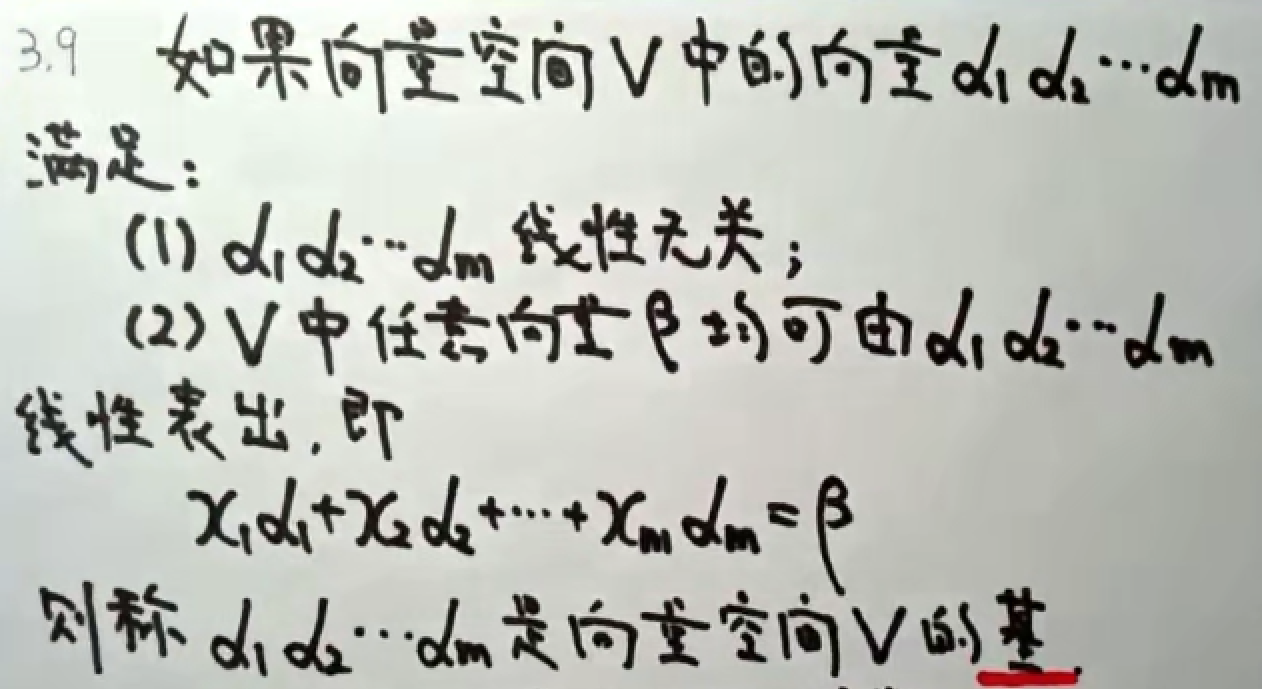 3.9 如果向量空间V中的向量α1 α2…αm
满足:
(1) α1 α2…αm 线性无关;
(2) V中任意向量β均可由α1 α2…αm
线性表出,即
x1α1+x2α2+…+xmαm=β
则称α1 α2…αm是向量空间V的基.